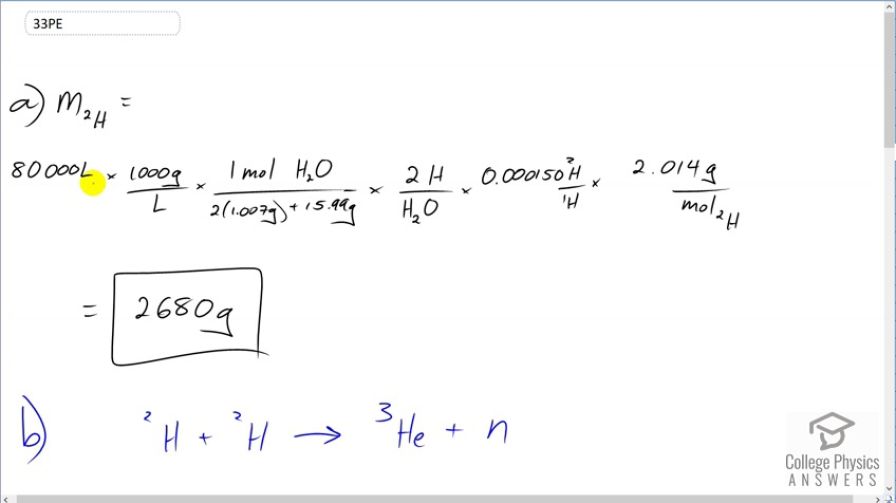 33PE
a) m₂H =
80000L × 1000g/L × 1mol H₂O/2(1.007g)+15.99g × 2H/H₂O × 0.000150²H/¹H × 2.014g/mol₂H
= 2680g
b) ²H + ²H → ³He + n
College Physics
ANSWERS